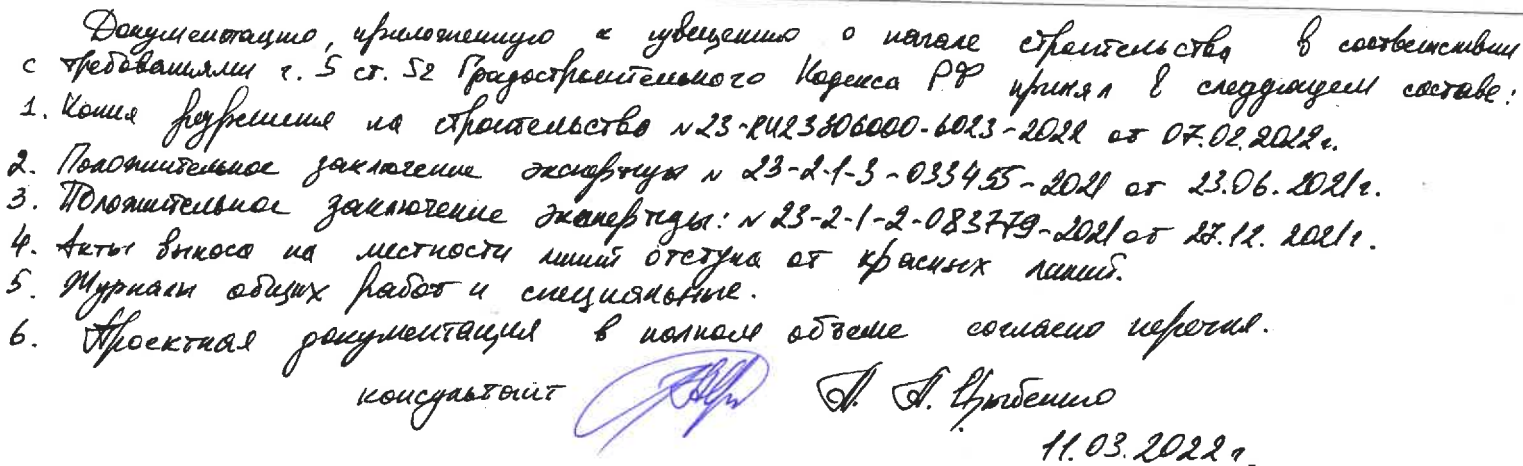 Документацию, приложенную к извещению о начале строительства в соответствии
с требованиями ч. 5 ст. 52 Градостроительного Кодекса РФ принял в следующем составе:
1. Копия разрешения на строительство №23-RU23306000-6023-2022 от 07.02.2022г.
2. Положительное заключение экспертизы № 23-2-1-3-033455-2021 от 23.06.2021г.
3. Положительное заключение экспертизы: № 23-2-1-2-083779-2021 от 27.12.2021г.
4. Акты выноса на местности линий отступа от красных линий.
5. Журналы общих работ и специальные.
6. Проектная документация в полном объёме согласно перечня.
консультант А. А. Цыбенко
11.03.2022 г.